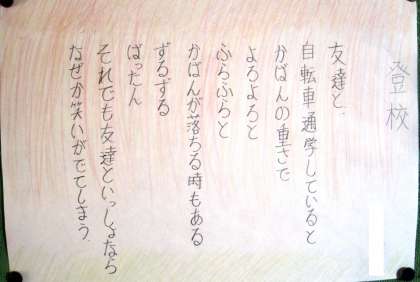 登校
友達と、
自転車通学していると
かばんの重さで
よろよろと
ぶらぶらと
かばんが落ちる時もある
ずるずる
ばったん
それでも友達といっしょなら
なぜか笑いがでてしまう。